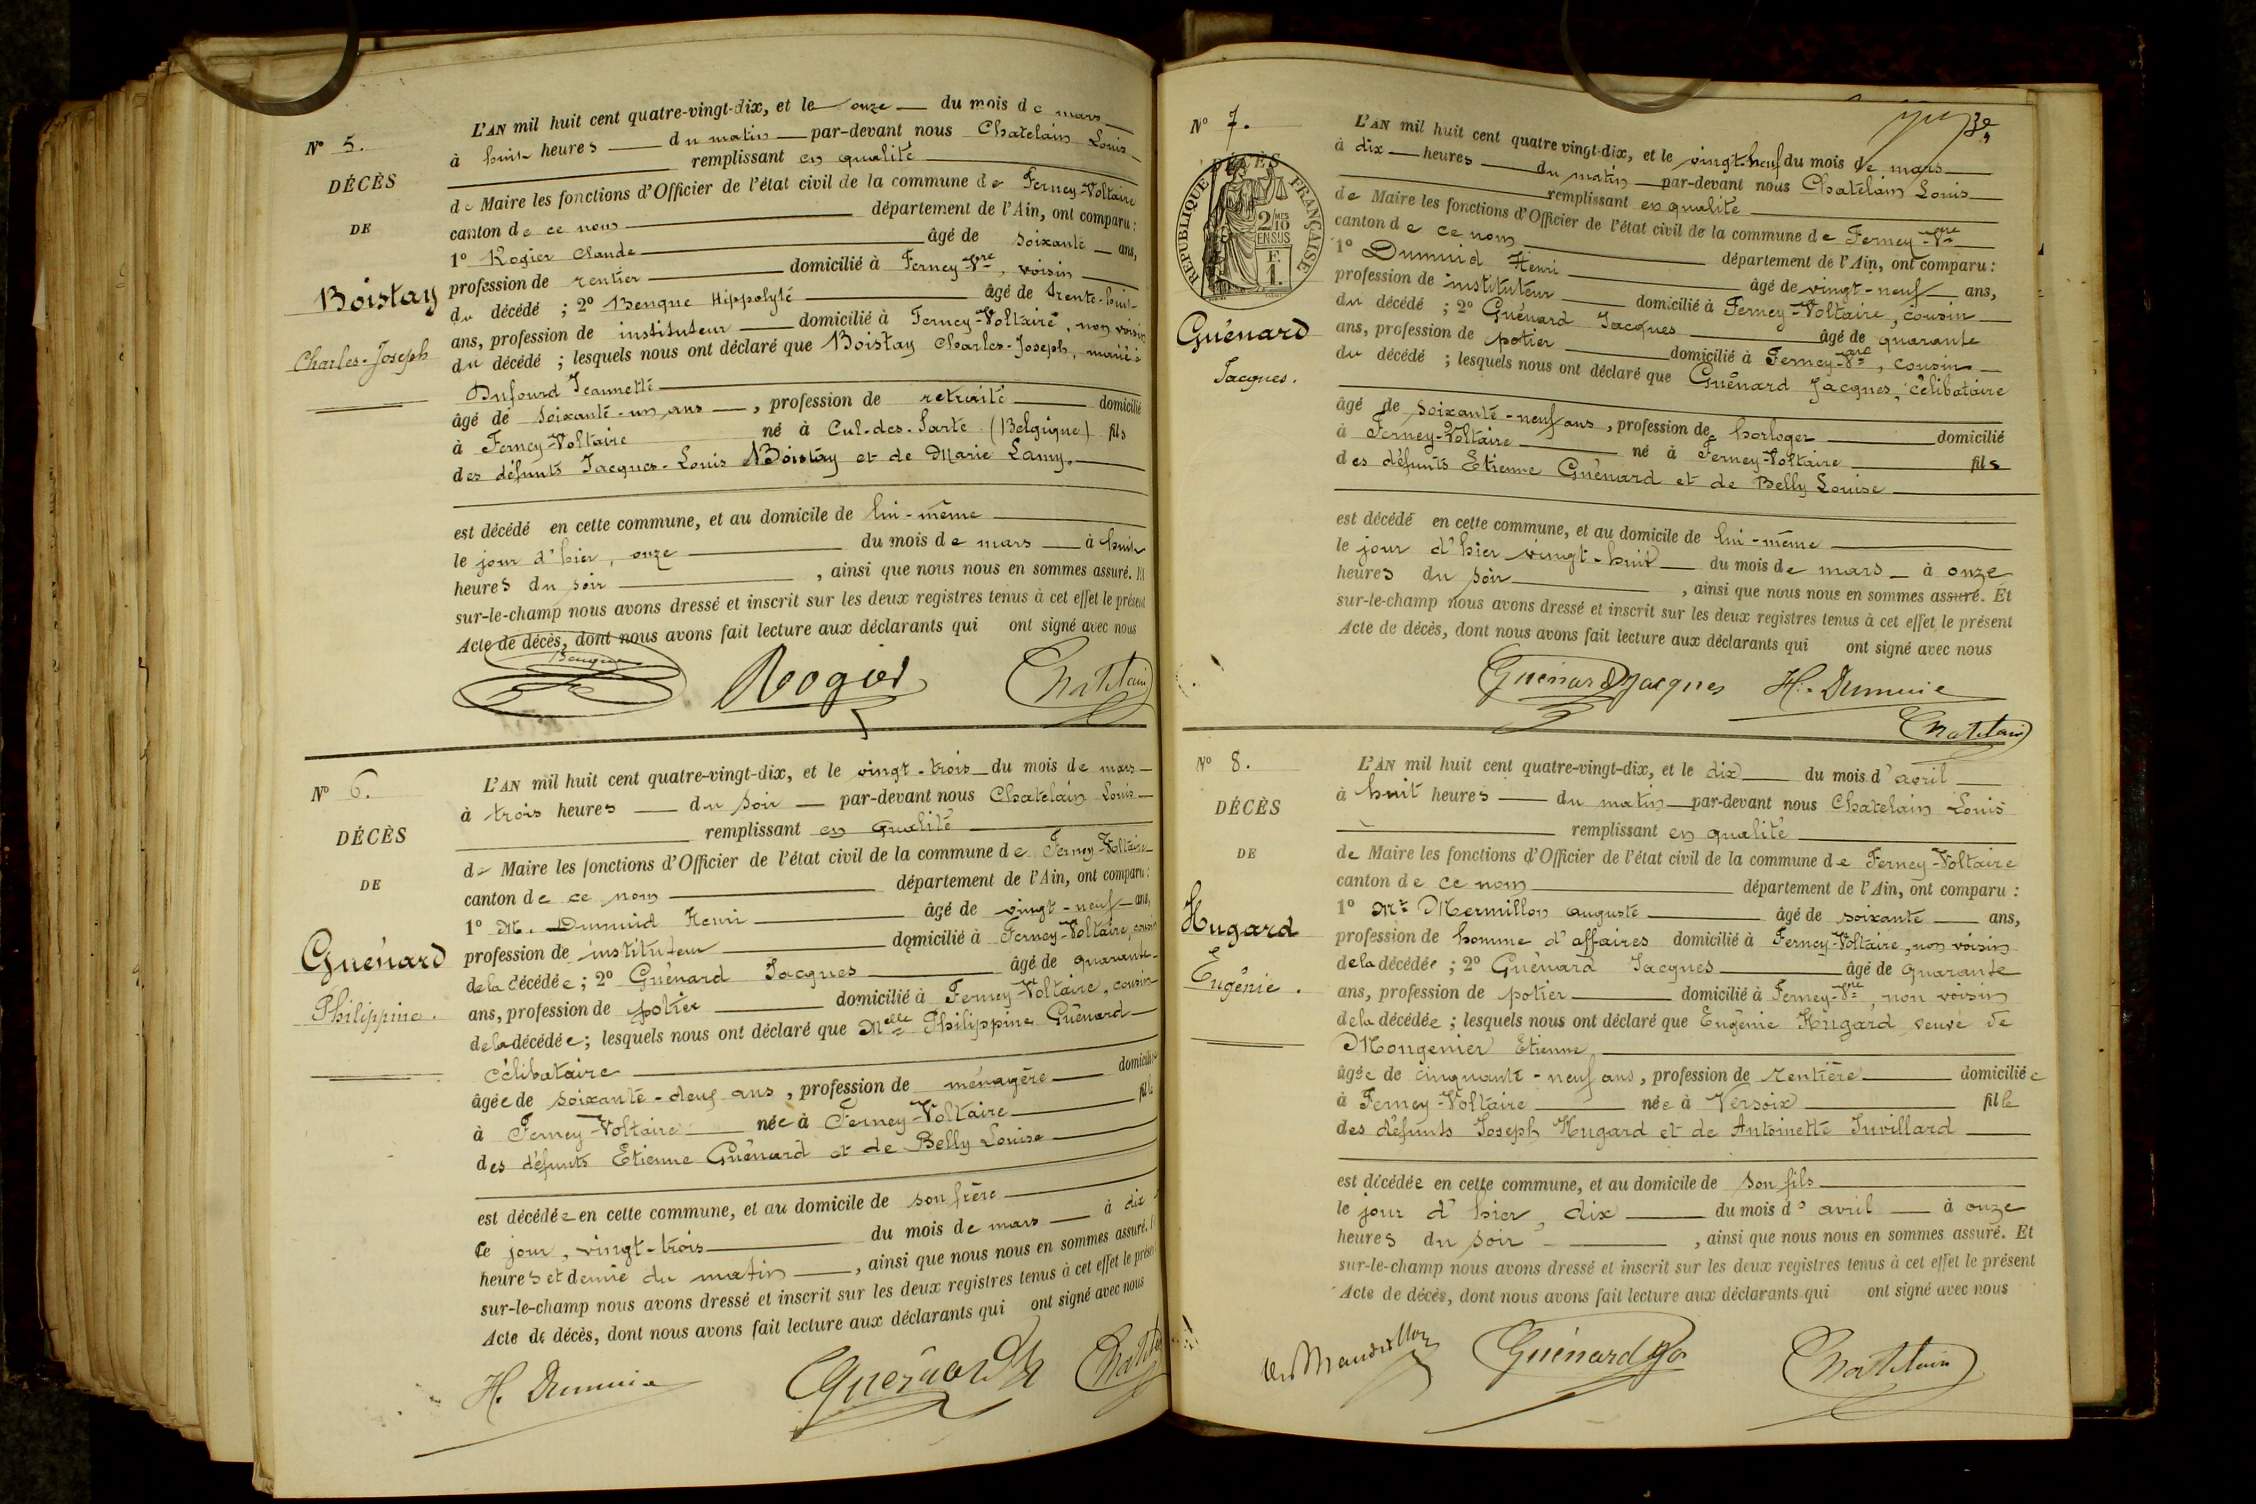 N° 5.
DÉCÈS
DE
Boistay
Charles-Joseph
L'AN mil huit cent quatre-vingt-dix, et le onze du mois de mars
à huit heures du matin par-devant nous Chatelain Louis
remplissant en qualité
de Maire les fonctions d'Officier de l'état civil de la commune de Ferney-Voltaire
canton de ce nom département de l'Ain, ont comparu :
1° Rogier Claude âgé de soixante ans,
profession de rentier domicilié à Ferney-Vre, voisin
du décédé ; 2° Benque Hippolyte âgé de trente-huit
ans, profession de instituteur domicilié à Ferney-Voltaire, non voisin
du décédé ; lesquels nous ont déclaré que Boistay Charles-Joseph, marié à
Dufourd Jeannette
âgé de soixante-un ans, profession de retraité domicilié
à Ferney-Voltaire né à Cul-des-Sarts (Belgique) fils
des défunts Jacques-Louis Boistay et de Marie Lamy.
est décédé en cette commune, et au domicile de lui-même
le jour d'hier, onze du mois de mars à huit
heures du soir, ainsi que nous nous en sommes assuré. Et
sur-le-champ nous avons dressé et inscrit sur les deux registres tenus à cet effet le présent
Acte de décès, dont nous avons fait lecture aux déclarants qui ont signé avec nous
Benque Rogier Chatelain
N° 6.
DÉCÈS
DE
Guénard
Philippine.
L'AN mil huit cent quatre-vingt-dix, et le vingt-trois du mois de mars
à trois heures du soir par-devant nous Chatelain Louis
remplissant en qualité
de Maire les fonctions d'Officier de l'état civil de la commune de Ferney-Voltaire
canton de ce nom département de l'Ain, ont comparu :
1° M. Dumuid Henri âgé de vingt-neuf ans,
profession de instituteur domicilié à Ferney-Voltaire, cousin
de la décédée ; 2° Guénard Jacques âgé de quarante
ans, profession de potier domicilié à Ferney-Voltaire, cousin
de la décédée ; lesquels nous ont déclaré que Melle Philippine Guénard
célibataire
âgée de soixante-deux ans, profession de ménagère domiciliée
à Ferney-Voltaire née à Ferney-Voltaire fille
des défunts Etienne Guénard et de Belly Louise
est décédée en cette commune, et au domicile de son frère
ce jour, vingt-trois du mois de mars à dix
heures et demie du matin, ainsi que nous nous en sommes assuré. Et
sur-le-champ nous avons dressé et inscrit sur les deux registres tenus à cet effet le présent
Acte de décès, dont nous avons fait lecture aux déclarants qui ont signé avec nous
H. Dumuid Guénard Ja Chatelain
N° 7.
DÉCÈS
RÉPUBLIQUE FRANÇAISE
2/10
EN SUS
Guénard
Jacques.
L'AN mil huit cent quatre vingt-dix, et le vingt-neuf du mois de mars
à dix heures du matin par-devant nous Chatelain Louis
remplissant en qualité
de Maire les fonctions d'Officier de l'état civil de la commune de Ferney-Vre
canton de ce nom département de l'Ain, ont comparu :
1° Dumuid Henri âgé de vingt-neuf ans,
profession de instituteur domicilié à Ferney-Voltaire, cousin
du décédé ; 2° Guénard Jacques âgé de quarante
ans, profession de potier domicilié à Ferney-Vre, cousin
du décédé ; lesquels nous ont déclaré que Guénard Jacques, célibataire
âgé de soixante-neuf ans, profession de horloger domicilié
à Ferney-Voltaire né à Ferney-Voltaire fils
des défunts Etienne Guénard et de Belly Louise
est décédé en cette commune, et au domicile de lui-même
le jour d'hier vingt-huit du mois de mars à onze
heures du soir, ainsi que nous nous en sommes assuré. Et
sur-le-champ nous avons dressé et inscrit sur les deux registres tenus à cet effet le présent
Acte de décès, dont nous avons fait lecture aux déclarants qui ont signé avec nous
Guénard Jacques H. Dumuid
Chatelain
N° 8.
DÉCÈS
DE
Hugard
Eugénie.
L'AN mil huit cent quatre-vingt-dix, et le dix du mois d'avril
à huit heures du matin par-devant nous Chatelain Louis
remplissant en qualité
de Maire les fonctions d'Officier de l'état civil de la commune de Ferney-Voltaire
canton de ce nom département de l'Ain, ont comparu :
1° Mr Mermillon Auguste âgé de soixante ans,
profession de homme d'affaires domicilié à Ferney-Voltaire, non voisin
de la décédée ; 2° Guénard Jacques âgé de quarante
ans, profession de potier domicilié à Ferney-Vre, non voisin
de la décédée ; lesquels nous ont déclaré que Eugénie Hugard veuve de
Mongenier Etienne
âgée de cinquante-neuf ans, profession de rentière domiciliée
à Ferney-Voltaire née à Versoix fille
des défunts Joseph Hugard et de Antoinette Juvillard
est décédée en cette commune, et au domicile de son fils
le jour d'hier, dix du mois d'avril à onze
heures du soir, ainsi que nous nous en sommes assuré. Et
sur-le-champ nous avons dressé et inscrit sur les deux registres tenus à cet effet le présent
Acte de décès, dont nous avons fait lecture aux déclarants qui ont signé avec nous
Guénard Ja Chatelain